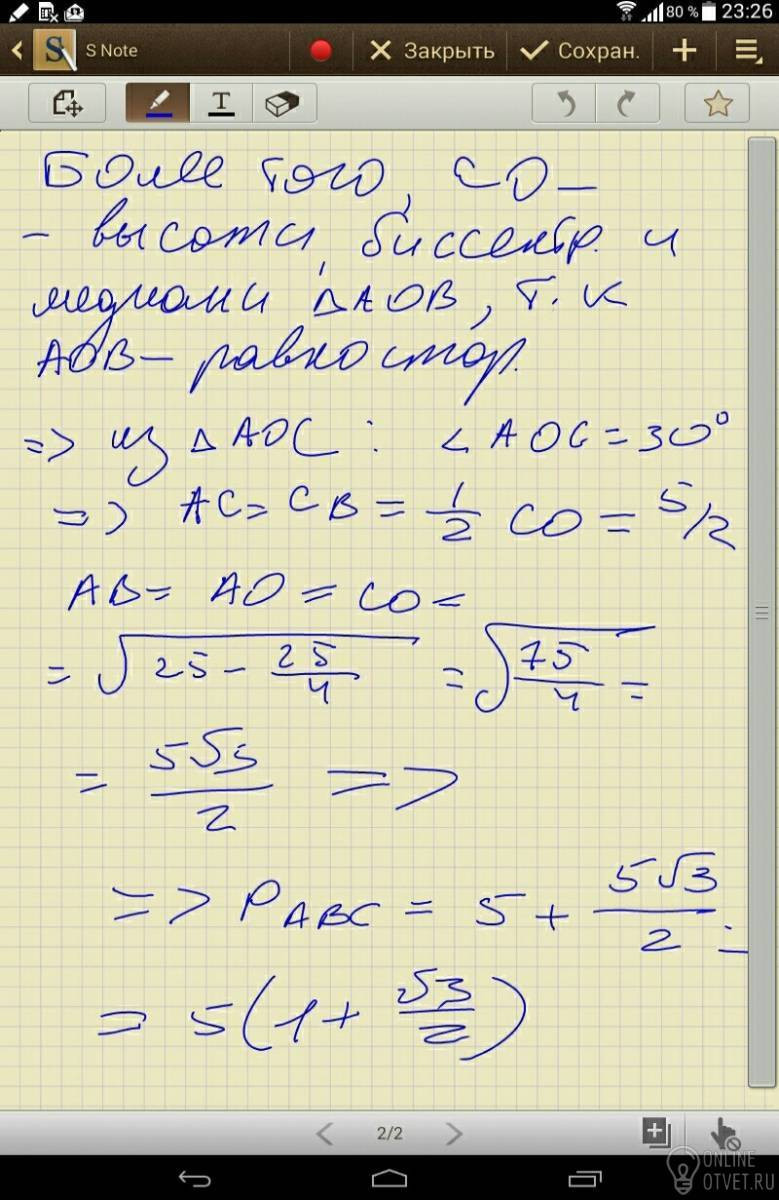 80 % 23:26
S Note Закрыть Сохран.
T
Более того, CO –
– высота, биссектр. и
медиана ΔAOB, т.к
AOB – равностор.
=> из ΔAOC: ∠AOC = 30°
=> AC = CB = 1/2 CO = 5/2
AB = AO = CO =
= √(25 - 25/4) = √(75/4) =
= 5√3/2 =>
=> P ABC = 5 + 5√3/2 =
= 5(1 + √3/2)
2/2
ONLINE
OTVET.RU